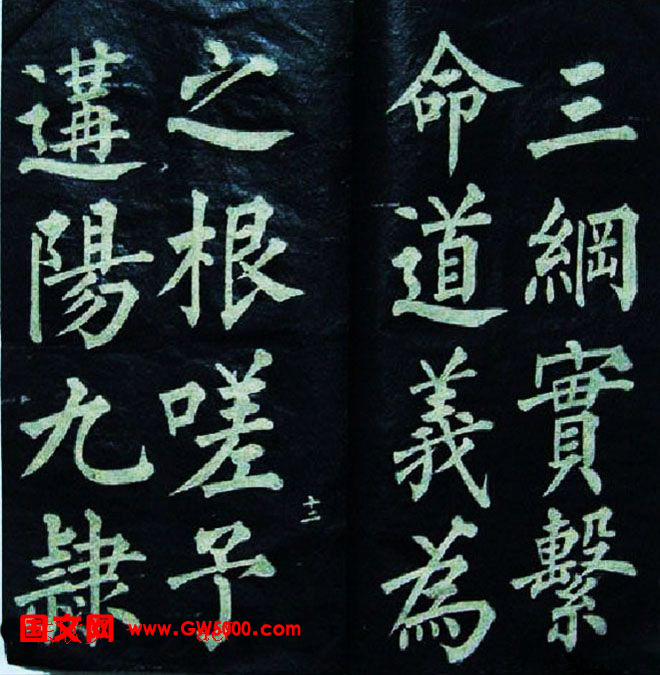 三綱實繫
命道義為
之根嗟予
遘陽九隷
十二
国文网 www.GW5000.com